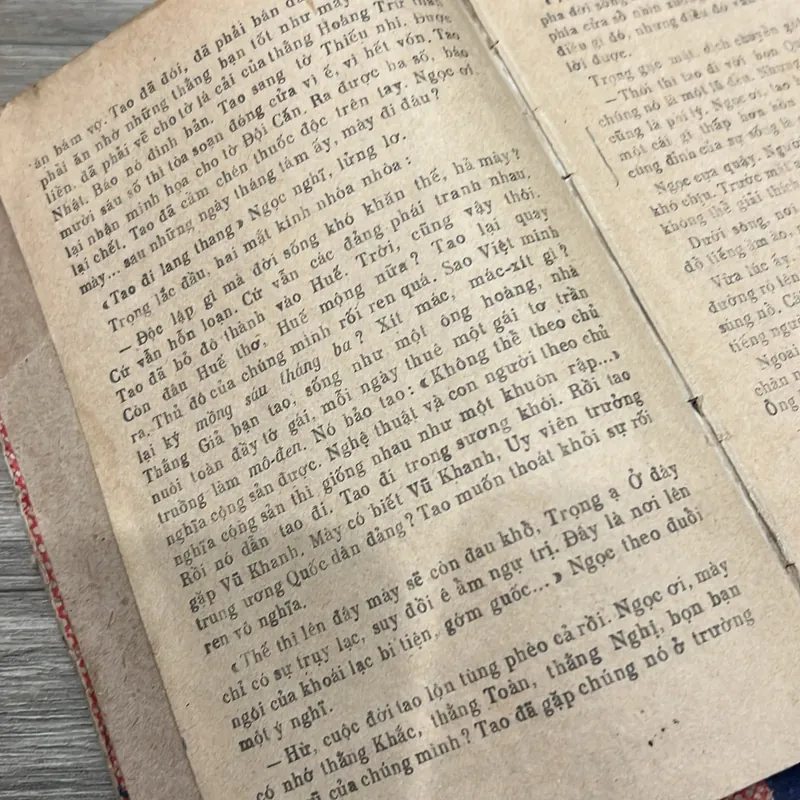 ăn bám vợ. Tao đã đói, đã phải bán đ
phải ăn nhờ những thằng bạn tốt như mày
liên, đã phải vẽ cho tờ lá cải của thằng Hoàng Trừ thân
Nhật. Báo nó đình bản. Tao sang tờ Thiếu nhi. Được
mười sáu số thì tòa soạn đóng cửa vì ế, vì hết vốn. Tao
lại nhận minh họa cho tờ Đội Cấn. Ra được ba số, báo
lại chết. Tao đã cầm chén thuốc độc trên tay. Ngọc ơi.
mày... sau những ngày tháng tám ấy, mày đi đâu?
«Tao đi lang thang» Ngọc nghĩ, lửng lơ.
Trọng lắc đầu, hai mắt kính nhòa nhòa:
— Độc lập gì mà đời sống khó khăn thế, hả mày?
Cứ vẫn hỗn loạn. Cứ vẫn các đảng phái tranh nhau.
Tao đã bỏ đó thành vào Huế. Trời, cũng vậy thôi.
Còn đâu Huế thơ, Huế mộng nữa? Tao lại quay
ra. Thủ đô của chúng mình rối ren quá. Sao Việt minh
lại ký mồng sáu tháng ba? Xít mác, mác-xít gì?
Thằng Giả bạn tao, sống như một ông hoàng, nhà
nuôi toàn đầy tớ gái, mỗi ngày thuê một gái tơ trần
truồng làm mô-đen. Nó bảo tao: «Không thể theo chủ
nghĩa cộng sản được. Nghệ thuật và con người theo chủ
nghĩa cộng sản thì giống nhau như một khuôn rập...»
Rồi nó dẫn tao đi. Tao đi trong sương khói. Rồi tao
gặp Vũ Khanh. Mày có biết Vũ Khanh, Ủy viên trưởng
trung ương Quốc dân đảng? Tao muốn thoát khỏi sự rối
ren vô nghĩa.
«Thế thì lên đây mày sẽ còn đau khổ, Trọng ạ. Ở đây
chỉ có sự trụy lạc, suy đồi ê ẩm ngự trị. Đây là nơi lên
ngôi của khoái lạc bi tiện, gớm guốc...» Ngọc theo đuổi
một ý nghĩ.
— Hừ, cuộc đời tao lộn tùng phèo cả rồi. Ngọc ơi, mày
có nhớ thằng Khắc, thằng Toàn, thằng Nghị, bọn bạn
cũ của chúng mình? Tao đã gặp chúng nó ở trường
pha đời sống
phía cửa sổ nhìn xuống
điều gì đó, nhưng điều đó vẫn
lời được.
Trọng gục mặt, dịch chuyển gót
— Thôi thì tao đi với bọn Qu
chúng nó là một lũ đểu. Nhưng
cũng là phi lý. Ngọc ơi, tao
một cái gì thấp hơn hòn
cùng đỉnh của sự sống là
Ngọc cựa quậy. Người
khó chịu. Trước mặt a
không thể giải thích
Dưới sông, nơi
đồ tiếng ầm ào,
Vừa lúc ấy,
đường rộ lên
súng nổ. Cá
tiếng ngư
Ngoài
chân n
Ông